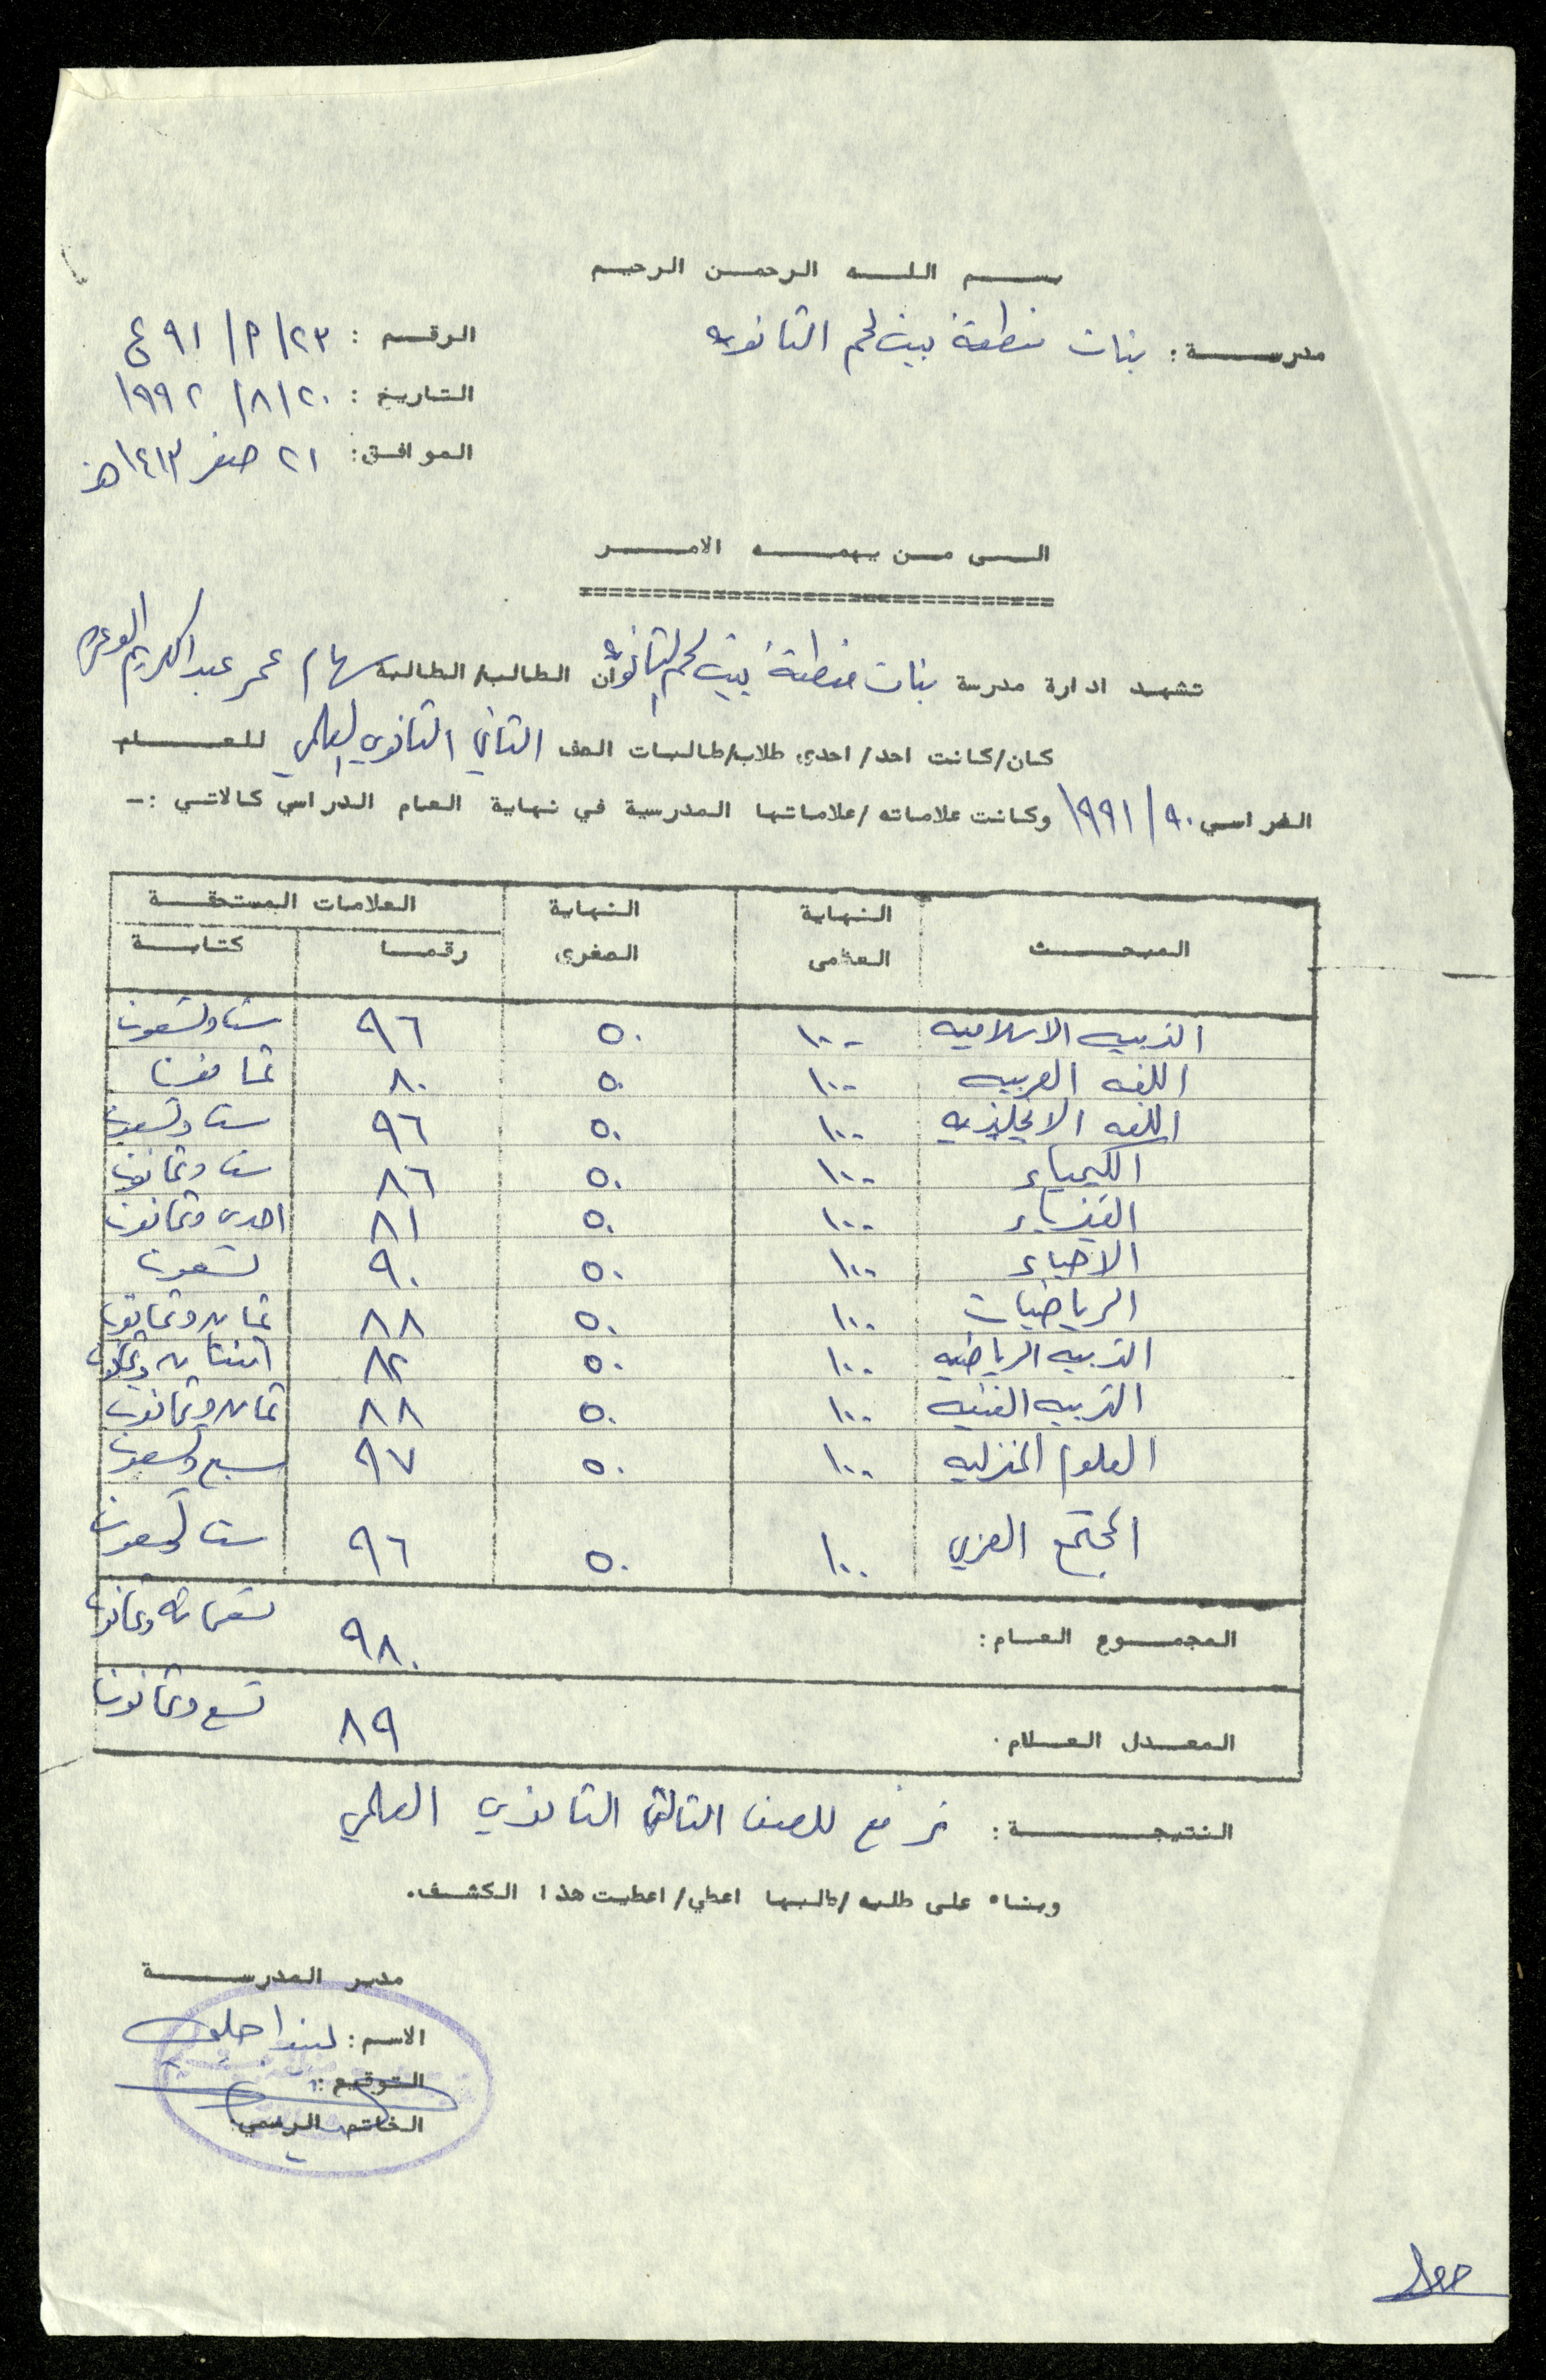 بسم الله الرحمن الرحيم
مدرسة : بنات منطقة بيت لحم الثانويه
الرقم : ٢٣/م/٩١ ع
التاريخ : ٢٠/٨/١٩٩٢
الموافق : ٢١ صفر ١٤١٣هـ
الى من يهمه الامر
تشهد ادارة مدرسة بنات منطقة بيت لحم الثانويه ان الطالب/الطالبة سهام عمر عبدالكريم
كان/كانت احد/احدى طلاب/طالبات الصف الثاني الثانوي العلمي للعام
الدراسي ٩٠/١٩٩١ وكانت علاماته/علاماتها المدرسية في نهاية العام الدراسي كالاتي :-
المبحث النهاية العظمى النهاية الصغرى العلامات المستحقة
رقما كتابة
التربيه الاسلاميه ١٠٠ ٥٠ ٩٦ ست وتسعون
اللغه العربيه ١٠٠ ٥٠ ٨٠ ثمانون
اللغه الانجليزيه ١٠٠ ٥٠ ٩٦ ست وتسعون
الكيمياء ١٠٠ ٥٠ ٨٦ ست وثمانون
الفيزياء ١٠٠ ٥٠ ٨١ احدى وثمانون
الاحياء ١٠٠ ٥٠ ٩٠ تسعون
الرياضيات ١٠٠ ٥٠ ٨٨ ثمان وثمانون
التربيه الرياضيه ١٠٠ ٥٠ ٨٢ اثنتان وثمانون
التربيه الفنيه ١٠٠ ٥٠ ٨٨ ثمان وثمانون
العلوم المنزليه ١٠٠ ٥٠ ٩٧ سبع وتسعون
المجتمع العربي ١٠٠ ٥٠ ٩٦ ست وتسعون
المجموع العام : ٩٨٠ تسعمائه وثمانون
المعدل العام . ٨٩ تسع وثمانون
النتيجة : ترفع للصف الثالث الثانوي العلمي
وبناء على طلبه/طلبها اعطي/اعطيت هذا الكشف.
مدير المدرسة
الاسم : ليندا
التوقيع :
الخاتم الرسمي